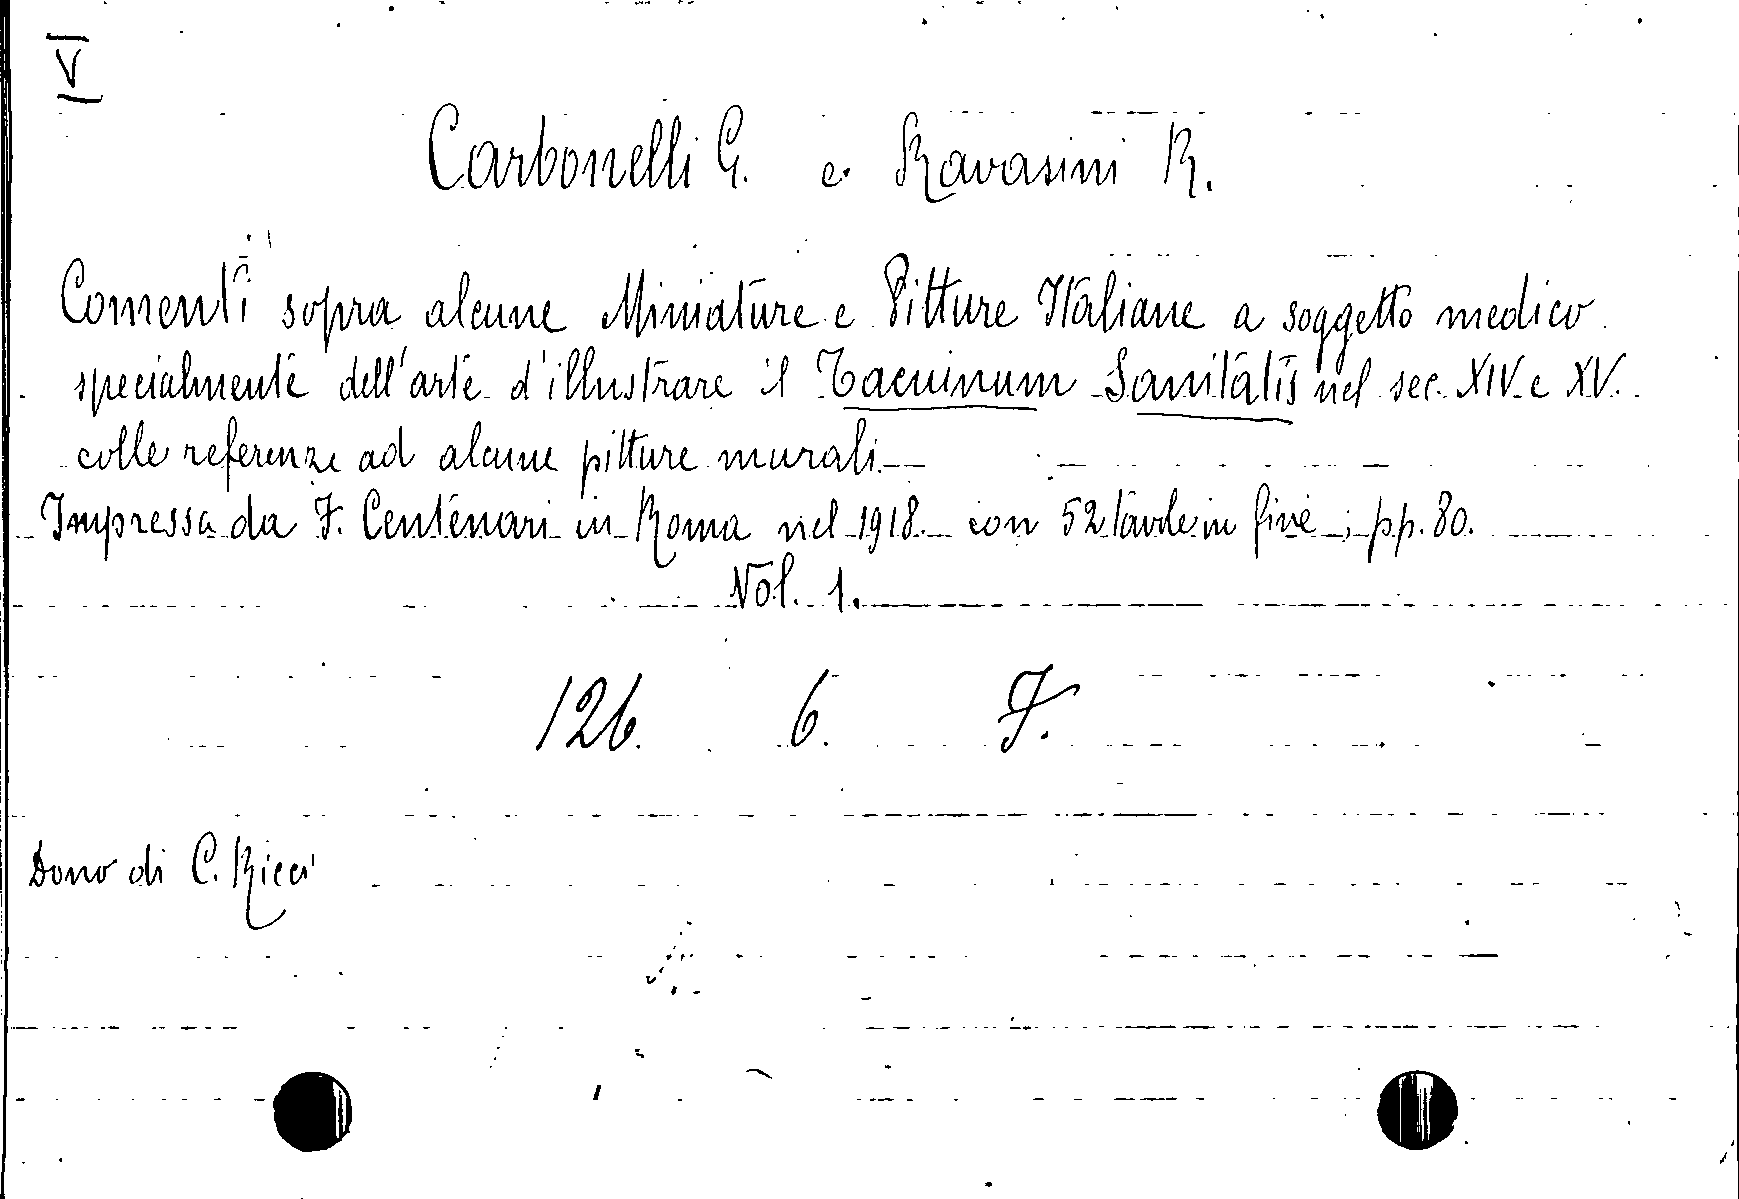 V
Carbonelli G. e Ravasini R.
Comenti sopra alcune Miniature e Pitture Italiane a soggetto medico
specialmente dell'arte d'illustrare il Tacuinum Sanitatis nel sec. XIV e XV.
colle referenze ad alcune pitture murali.
Impressa da F. Centenari in Roma nel 1918. con 52 tavole in fine; pp. 80.
Vol. 1.
126. 6. F.
Dono di C. Ricci